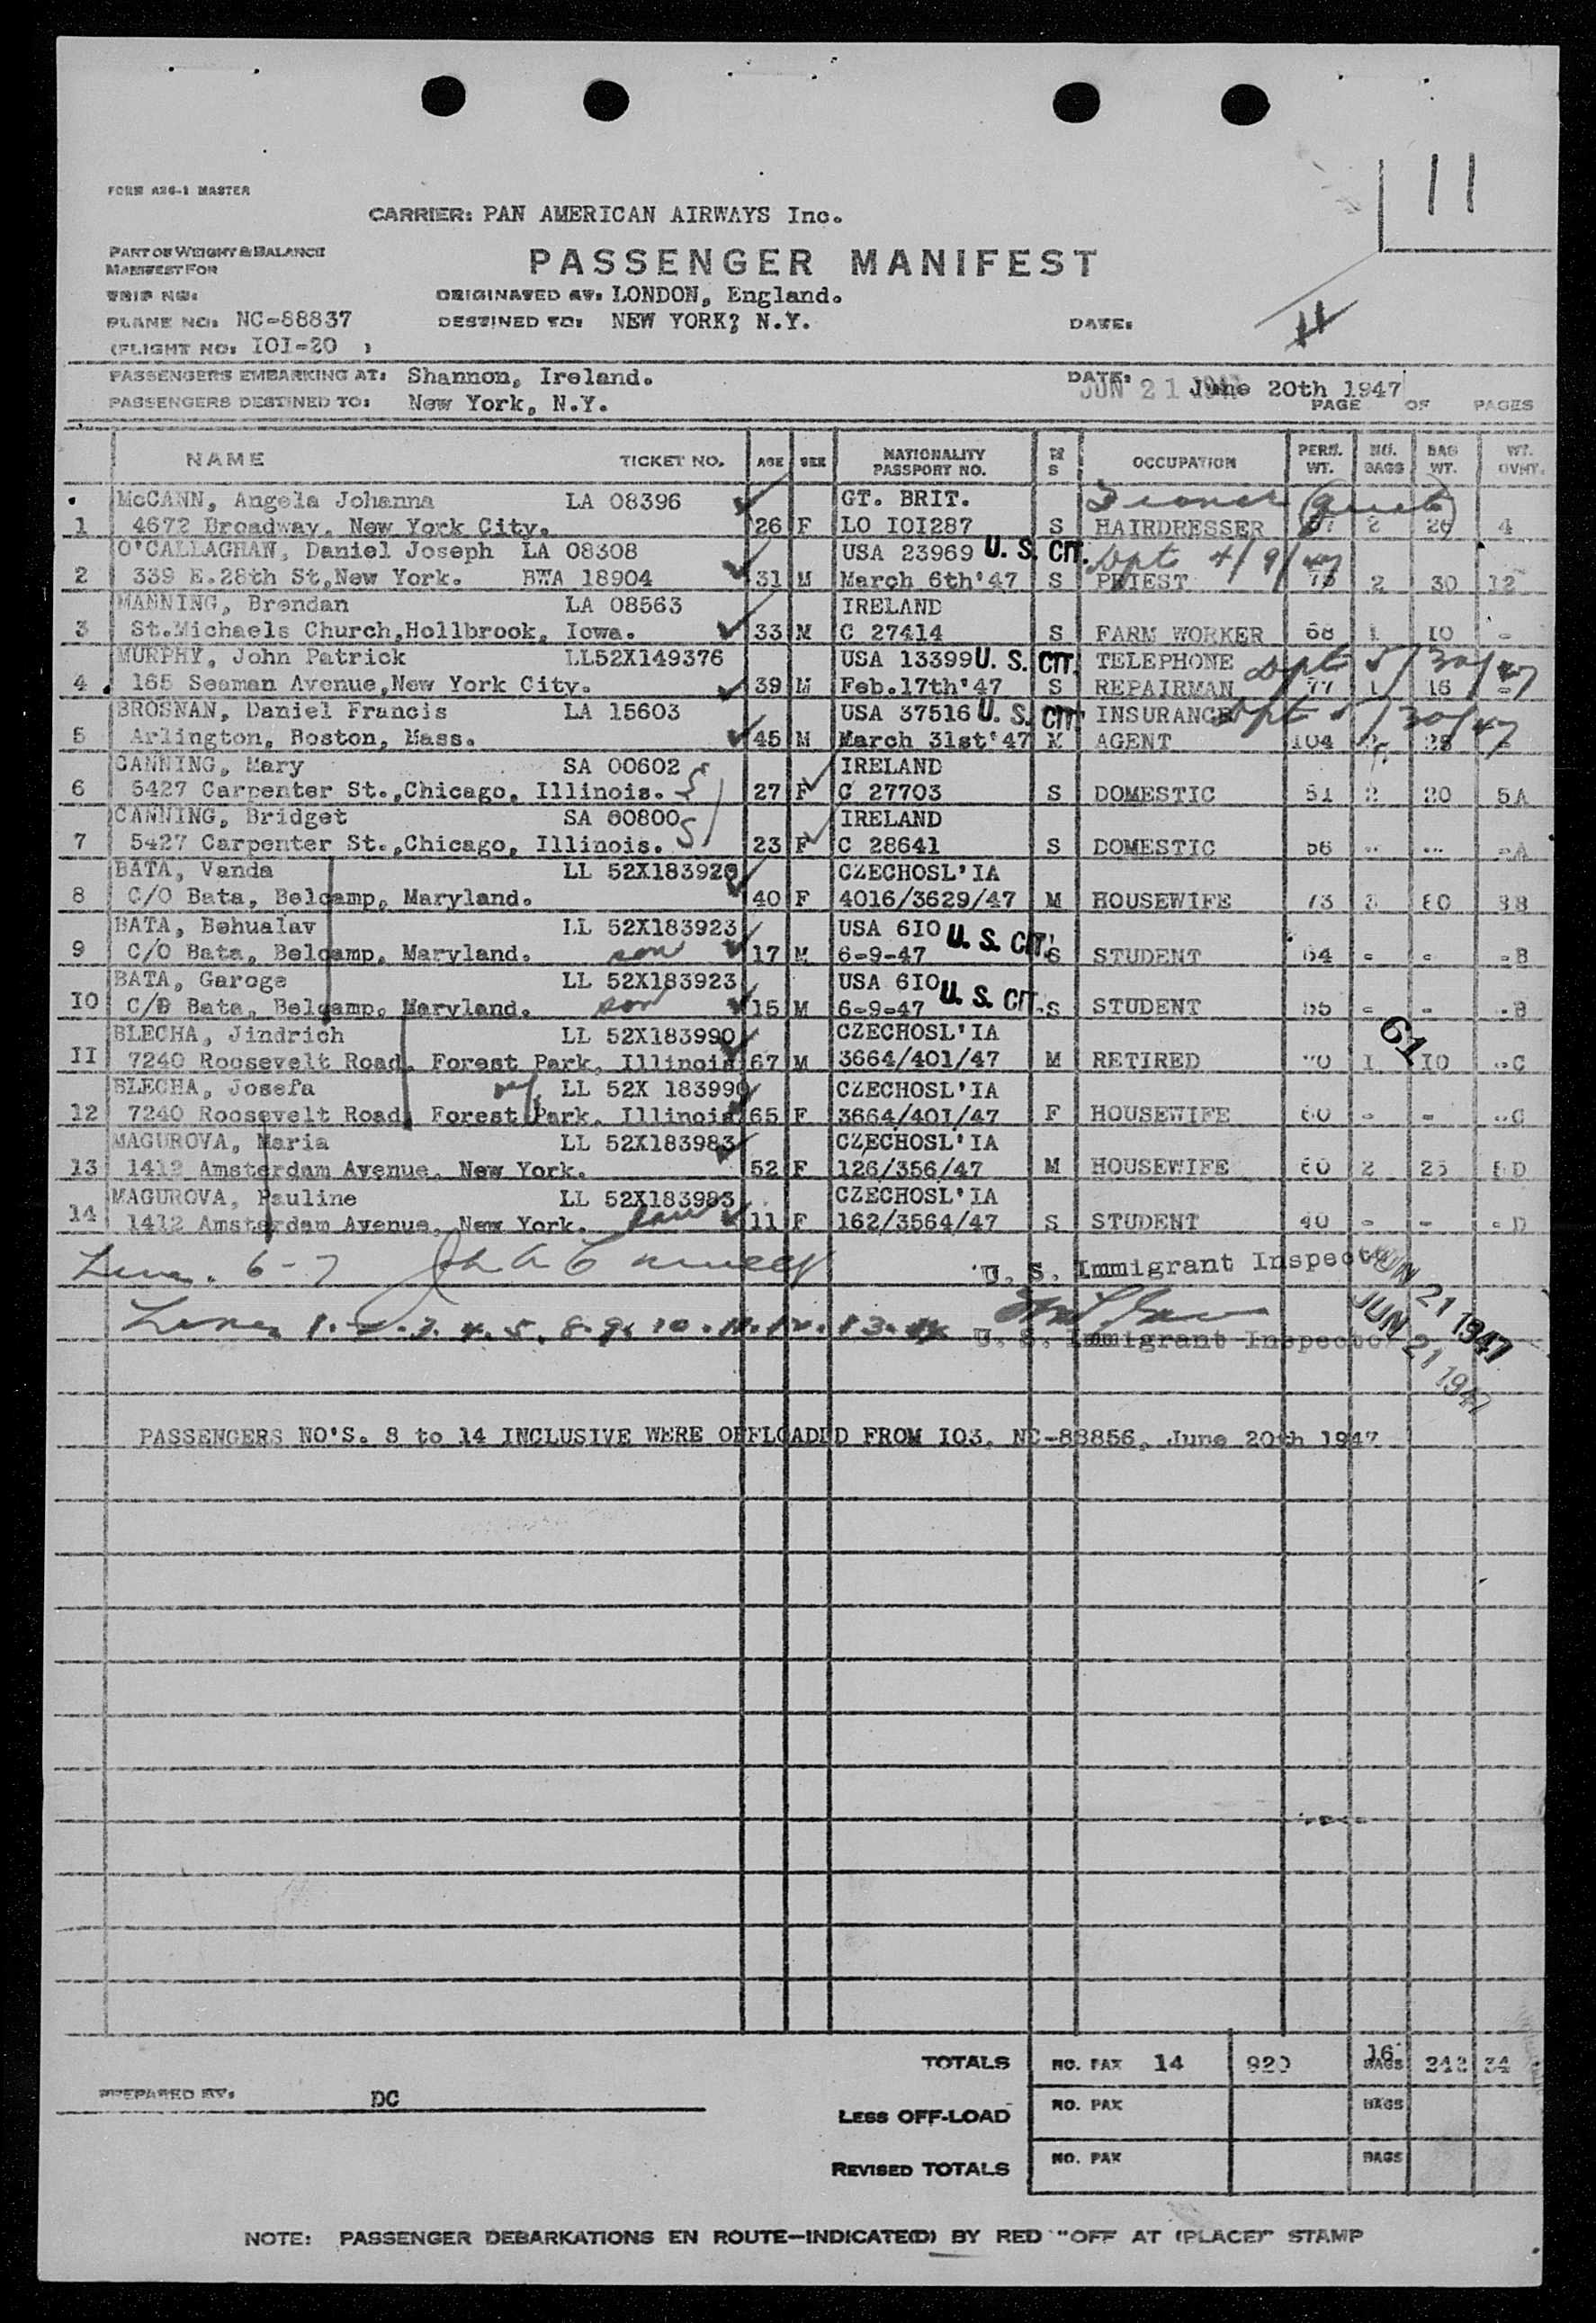 11
FORM A26-1 MASTER
CARRIER: PAN AMERICAN AIRWAYS Inc.
PART OF WEIGHT & BALANCE
MANIFEST FOR
PASSENGER MANIFEST
TRIP NO:
ORIGINATED AT: LONDON, England.
PLANE NO: NC-88837
DESTINED TO: NEW YORK? N.Y.
DATE:
11
(FLIGHT NO: IOI-20 )
PASSENGERS EMBARKING AT: Shannon, Ireland.
DATE: JUN 21 1947 June 20th 1947
PASSENGERS DESTINED TO: New York, N.Y.
PAGE OF PAGES
NAME TICKET NO. AGE SEX NATIONALITY PASSPORT NO. M S OCCUPATION PERN. WT. NO. BAGS BAG WT. WT. OVHT.
McCANN, Angela Johanna LA 08396 GT. BRIT.
1 4672 Broadway, New York City. 26 F LO IOI287 S HAIRDRESSER 2 26 4
O'CALLAGHAN, Daniel Joseph LA 08308 USA 23969 U. S. CIT. Dpt 4/9/47
2 339 E.28th St,New York. BWA 18904 31 M March 6th'47 S PRIEST 2 30 12
MANNING, Brendan LA 08563 IRELAND
3 St.Michaels Church,Hollbrook, Iowa. 33 M C 27414 S FARM WORKER 68 1 IO -
MURPHY, John Patrick LL52X149376 USA 13399 U. S. CIT. TELEPHONE Dpt 5/30/47
4 165 Seaman Avenue,New York City. 39 M Feb.17th'47 S REPAIRMAN 77 1 16 -
BROSNAN, Daniel Francis LA 15603 USA 37516 U. S. CIT. INSURANCE Dpt 5/30/47
5 Arlington, Boston, Mass. 45 M March 31st'47 M AGENT 104
CANNING, Mary SA 00602 IRELAND
6 5427 Carpenter St.,Chicago, Illinois. 27 F C 27703 S DOMESTIC 51 2 20 5A
CANNING, Bridget SA 00800 IRELAND
7 5427 Carpenter St.,Chicago, Illinois. 23 F C 28641 S DOMESTIC 56 - - -A
BATA, Vanda LL 52X183923 CZECHOSL'IA
8 C/O Bata, Belcamp, Maryland. 40 F 4016/3629/47 M HOUSEWIFE 73
BATA, Bohualav LL 52X183923 USA 6IO U. S. CIT.
9 C/O Bata, Belcamp, Maryland. son 17 M 6-9-47 S STUDENT 64 - - -B
BATA, Garoge LL 52X183923 USA 6IO U. S. CIT.
IO C/O Bata, Belcamp, Maryland. son 15 M 6-9-47 S STUDENT 55 - - -B
BLECHA, Jindrich LL 52X183990 CZECHOSL'IA 61
II 7240 Roosevelt Road, Forest Park, Illinois 67 M 3664/401/47 M RETIRED 70 1 IO -C
BLECHA, Josefa LL 52X 183990 CZECHOSL'IA
12 7240 Roosevelt Road, Forest Park, Illinois 65 F 3664/401/47 F HOUSEWIFE 60 - - -C
MAGUROVA, Maria LL 52X183983 CZECHOSL'IA
13 1412 Amsterdam Avenue, New York. 52 F 126/356/47 M HOUSEWIFE 60 2 25
MAGUROVA, Pauline LL 52X183983 CZECHOSL'IA
14 1412 Amsterdam Avenue, New York. 11 F 162/3564/47 S STUDENT 40 - - -D
6-7 U. S. Immigrant Inspector JUN 21 1947
Lines 1.2.3.4.5.8.9.10.11.12.13.14 U. S. Immigrant Inspector JUN 21 1947
PASSENGERS NO'S. 8 to 14 INCLUSIVE WERE OFFLOADED FROM IO3, NC-88856, June 20th 1947
TOTALS NO. PAX 14 920 16 BAGS 242 34
PREPARED BY: DC
LESS OFF-LOAD NO. PAX BAGS
REVISED TOTALS NO. PAX BAGS
NOTE: PASSENGER DEBARKATIONS EN ROUTE—INDICATE(D) BY RED "OFF AT (PLACE)" STAMP